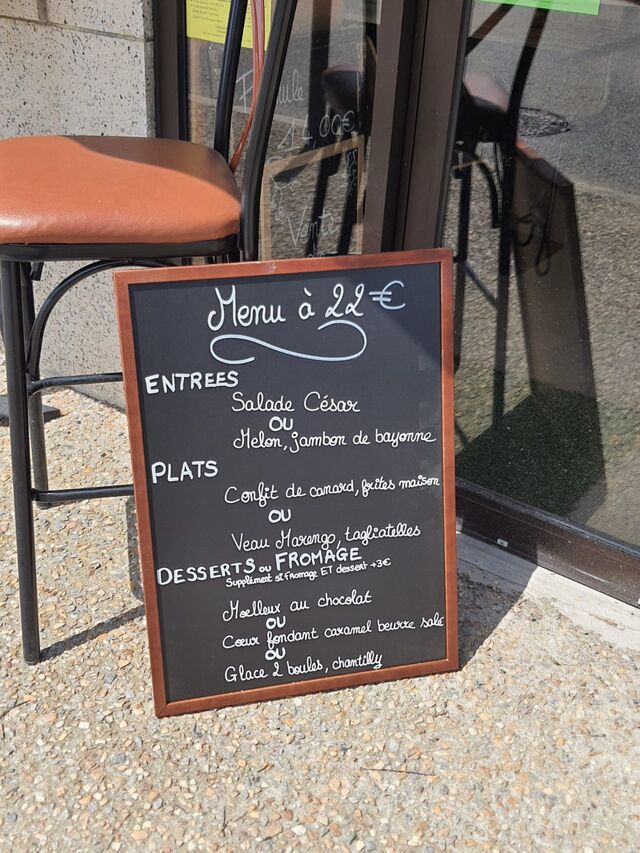 14,00€
Vente
Menu à 22€
ENTREES
Salade César
OU
Melon, jambon de bayonne
PLATS
Confit de canard, frites maison
OU
Veau Marengo, tagliatelles
DESSERTS ou FROMAGE
Supplément si fromage ET dessert +3€
Moelleux au chocolat
OU
Cœur fondant caramel beurre salé
OU
Glace 2 boules, chantilly